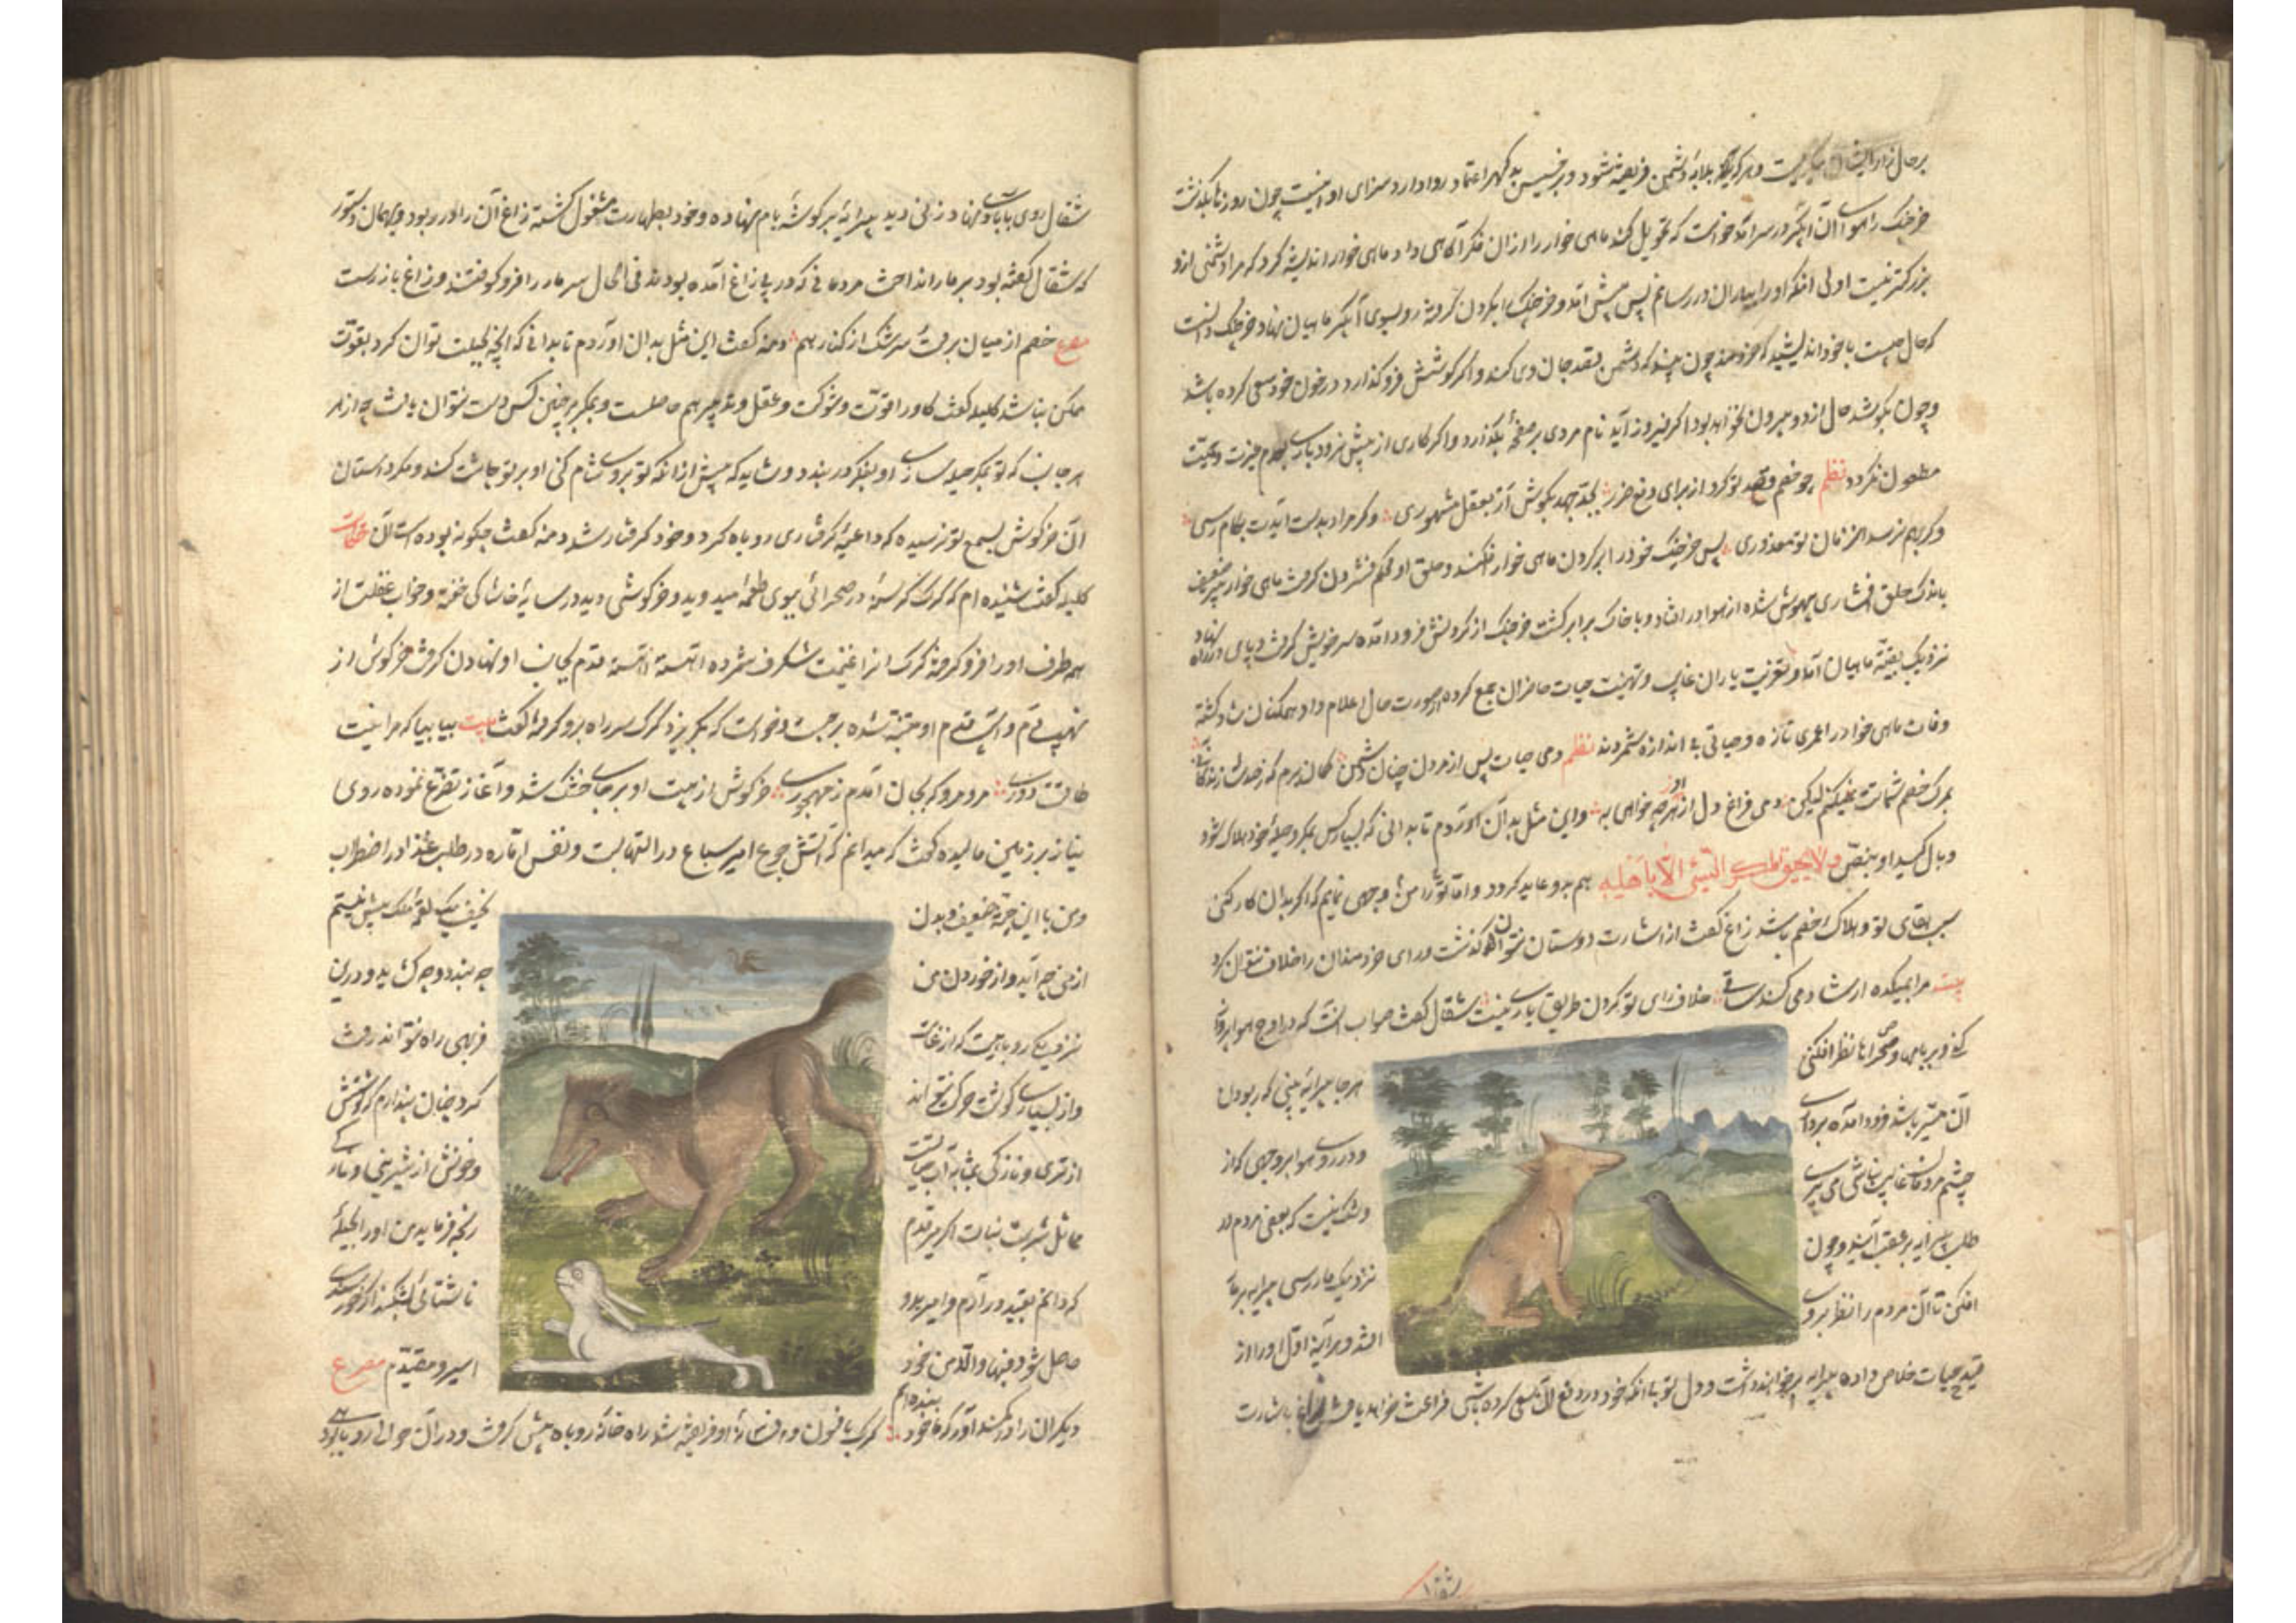 برحال زار ایشان میگریست و هرکه بلابهٔ دشمن فریفته شود و بر خسیس بدگهر اعتماد روا دارد سزای او اینست چون روزها بگذشت
خرچنگ را هوای آن آبگیر در سر آمد خواست که تحویل کند ماهی خوار را از آن فکر آگاهی داد ماهی خوار اندیشه کرد که مرا دشمنی ازو
بزرگتر نیست اولی آنکه او را بیاران در رسانم پس پیش آمد و خرچنگ را بگردن گرفته رو بسوی آبگیر ماهیان نهاد و خرچنگ دانست
که حال چیست با خود اندیشید که خردمند چون بیند که دشمن بقصد جان وی کند و اگر کوشش فروگذارد در خون خود سعی کرده باشد
و چون بکوشد حال از دو بیرون نخواهد بود اگر فیروز آید نام مردی بر صفحهٔ بگذارد و اگر کاری از پیش نرود باری بعدم غیرت و حمیت
مطعون نگردد نظم چو خصم قصد تو کرد از برای دفع ضرر بجد و جهد بکوش ار بعقل مشهوری وگر مراد بدست آیدت بکام رسی
وگر بهم نرسد آن زمان تو معذوری پس خرچنگ خود را بر گردن ماهی خوار افکند و حلق او محکم فشردن گرفت ماهی خوار پیر ضعیف
باندک حلق افشاری بیهوش شده از هوا در افتاد و با خاک برابر گشت خرچنگ از گردنش فرود آمده سر خویش گرفت و پای در راه نهاد
نزدیک بقیهٔ ماهیان آمد و تعزیت یاران غایب و تهنیت حیات حاضران جمع کرده از صورت حال اعلام داد همگنان شاد گشته
وفات ماهی خوار را عمری تازه و حیاتی بی اندازه شمردند نظم دمی حیات پس از مردن چنان دشمن گمان برم که ز صد سال زندگانی
بمرگ خصم شماتت نمیکنم لیکن دمی فراغ دل از هرچه خواهی به و این مثل بدان آوردم تا بدانی که بسیار کس بمکر و حیلهٔ خود هلاک شود
و وبال کید او بنص ولا یحیق المکر السیئ الا باهله هم بدو عاید گردد و اما ترا من وجهی نمایم که اگر بدان کار کنی
سبب بقای تو و هلاک خصم باشد زاغ گفت از اشارت دوستان نتوان گذشت و رای خردمندان را خلاف نتوان کرد
بیت مرا بمیکده ارشاد می کند ساقی خلاف رای تو کردن طریق یاری نیست شغال گفت صواب آنست که در اوج هوا پرواز
کنی و بر بامها و صحراها نظر افکنی هرجا پیرایه بینی که ربودن
آن میسر باشد فرود آمده برداری و در روی هوا بر وجهی که از
چشم مردمان غایب نباشی می پری و شک نیست که بعضی مردم در
طلب پیرایه بر عقب آیند و چون نزدیک مار رسی پیرایه بر مار
افکن تا آن مردم را نظر بر وی افتد و هرآینه اول او را از
قید حیات خلاص داده پیرایه بخواهند داشت و دل تو بی آنکه خود در دفع آن سعی کرده باشی فراغت خواهد یافت زاغ باشارت
شغال
شغال روی بآبادی نهاد زنی دید پیرایه بر گوشهٔ بام نهاده و خود بطهارت مشغول گشته زاغ آن را در ربود و بهمان دستور
که شغال گفته بود بر مار انداخت مردمانی که در پی زاغ آمده بودند فی الحال سر مار را فرو کوفتند و زاغ باز رست
مصرع خصم از میان برفت سرشک از کنار هم دمنه گفت این مثل بدان آوردم تا بدانی که آنچه بحیلت توان کرد بقوت
ممکن نباشد کلیله گفت گاو را قوت و شوکت و عقل و تدبیر هم حاصلست و بمکر بر چنین کس دست نتوان یافت چه از هر
هر جانب که تو بمکر حیله سازی او بفکر در بندد و شاید که پیش از آنکه تو بروی شام کنی او بر تو چاشت کند و مگر داستان
آن خرگوش بسمع تو نرسیده که داعیهٔ گرفتاری روباه کرد و خود گرفتار شد دمنه گفت چگونه بوده است آن حکایت
کلیله گفت شنیده ام که گرگ گرسنه در صحرائی ببوی طعمه میدوید و خرگوشی دید در سایهٔ خاشاکی خفته و خواب غفلت از
همه طرف او را فرو گرفته گرگ آنرا غنیمت شگرف شمرده آهسته آهسته قدم بجانب او نهادن گرفت خرگوش از
نهیب دم و آسیب قدم او متنبه شده برجست و خواست که بگریزد گرگ سر راه برو گرفته گفت بیت بیا بیا که مرا نیست
طاقت دوری مرو مرو که بجان آمدم ز مهجوری خرگوش از هیبت او بر جای خشک شد و آغاز تضرع نموده روی
نیاز بر زمین مالیده گفت که میدانم که آتش جوع امیر سباع در التهابست و نفس اماره در طلب غذا در اضطراب
و من با این جثهٔ ضعیف و بدن نحیف یک لقمهٔ ملک بیش نیستم
از من چه آید و از خوردن من چه بندد و چه گشاید و درین
نزدیکی روباهیست که از غایت فربهی راه نتواند رفت
و از بسیاری گوشت حرکت نتواند کرد چنان پندارم که گوشتش
از تری و نازکی بمثابه آب حیاتست و خونش از شیرینی و مزه
مماثل شربت نبات اگر میر قدم رنجه فرماید من او را بحیلهٔ
که دانم بقید در آرم و امیر بدو ناشتائی بشکند اگر خورسندی
حاصل شود فبها والا من خود اسیر و مقیدم مصرع
دیگران را در کمند آور که ما خود بنده ایم گرگ بافسون و افسانهٔ او فریفته شد راه خانهٔ روباه پیش گرفت و در آن حوالی روباهی بود